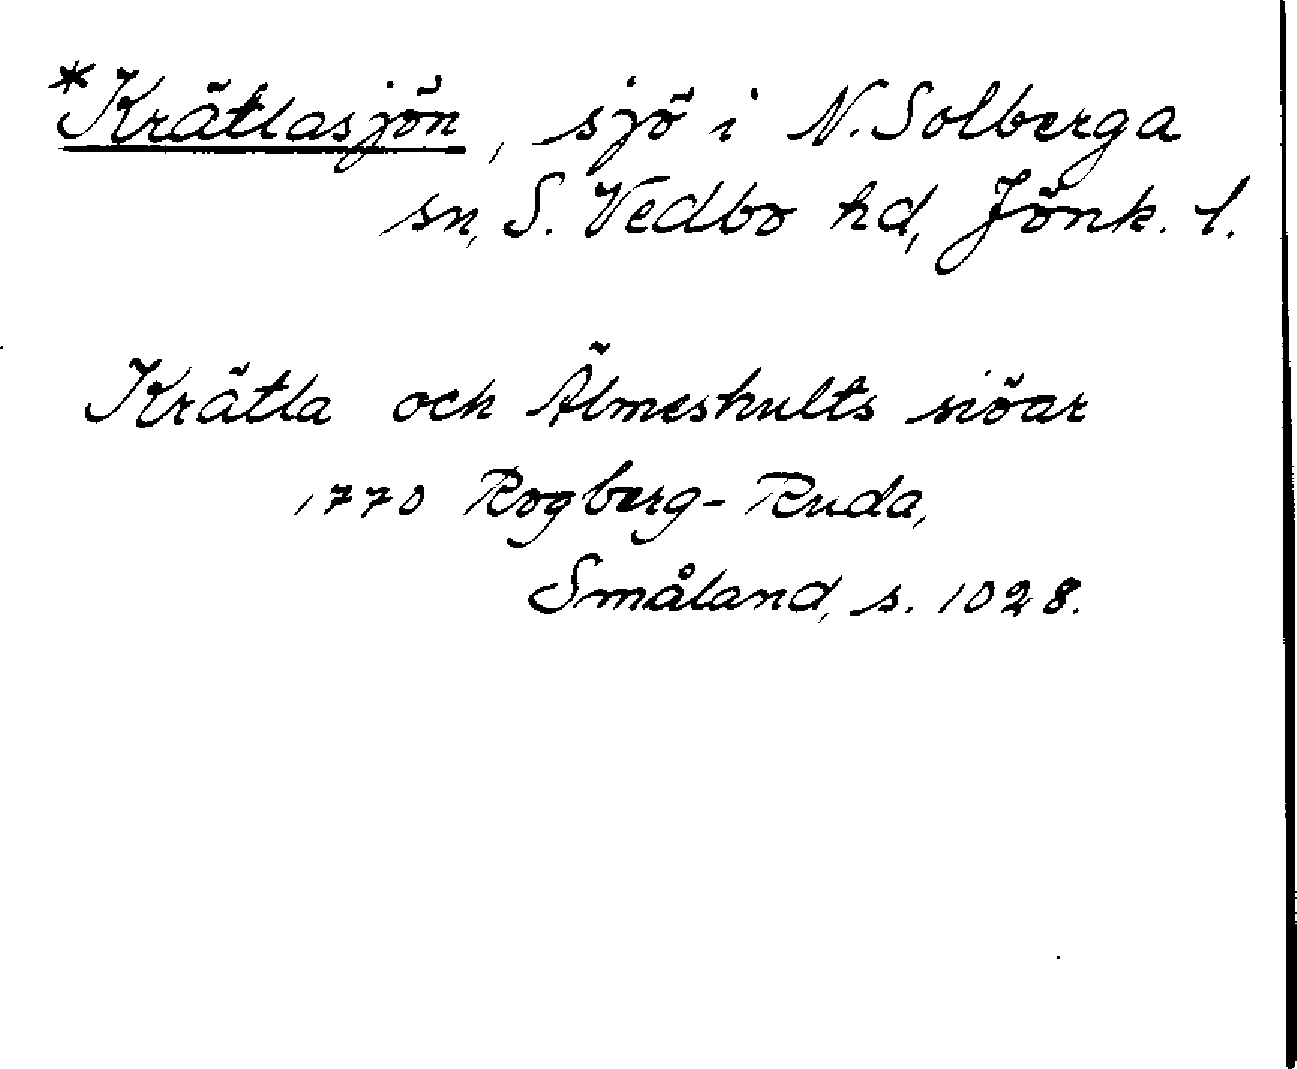 *Krätlasjön, sjö i N. Solberga
sn, S. Vedbo hd, Jönk. l.
Krätla och Älmeshults siöar
1770 Rogberg-Ruda,
Småland, s. 1028.